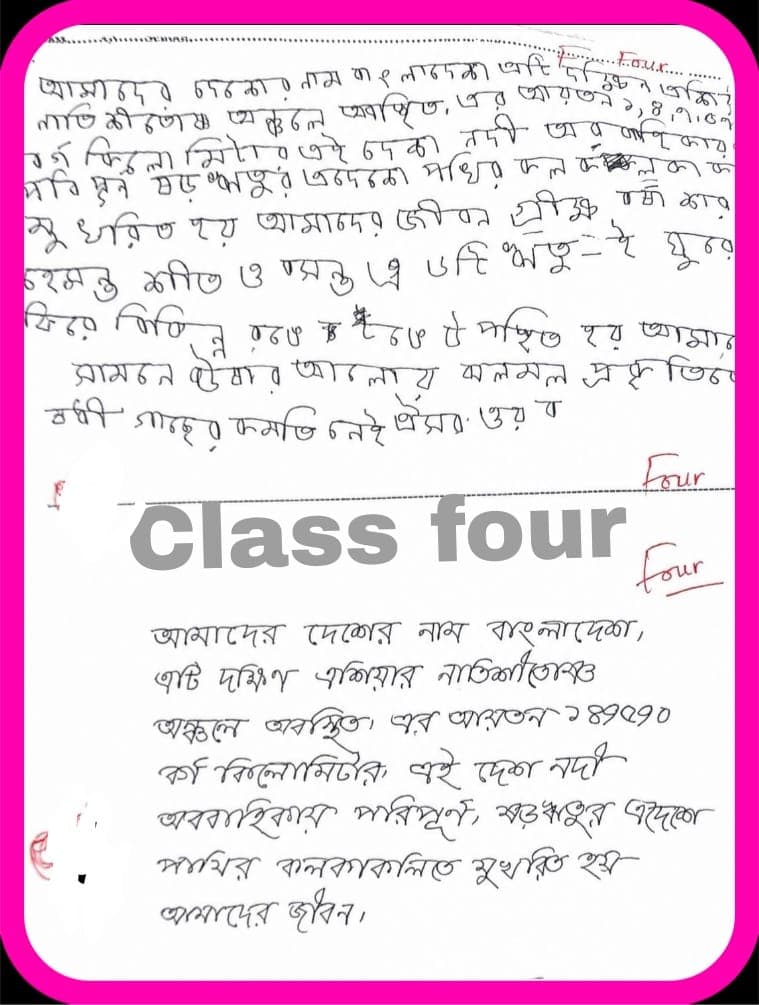 Four
আমাদের দেশের নাম বাংলাদেশ এটি দক্ষিন এশি
নাতিশীতোষ্ণ অঞ্চলে অবস্থিত. এর আয়তন ১,৪৭,৫৭
বর্গ কিলোমিটার এই দেশ নদী অববাহিকায়
পরিপূর্ন ষড়ঋতুর এদেশে পাখির কল কাক
মুখরিত হয় আমাদের জীবন গ্রীষ্ম বর্ষা শর
হেমন্ত শীত ও বসন্ত এ ৬টি ঋতু-ই ঘুরে
ফিরে বিভিন্ন রঙে পস্থিত হয় আমাদে
সামনে আলোয় ঝলমল প্রকৃতিতে
বর্ষী গাছের কমতি নেই
Four
Class four
Four
আমাদের দেশের নাম বাংলাদেশ,
এটি দক্ষিণ এশিয়ার নাতিশীতোষ্ণ
অঞ্চলে অবস্থিত। এর আয়তন ১৪৭৫৭০
বর্গ কিলোমিটার। এই দেশ নদী
অববাহিকায় পরিপূর্ণ, ষড়ঋতুর এদেশে
পাখির কলকাকলিতে মুখরিত হয়
আমাদের জীবন।